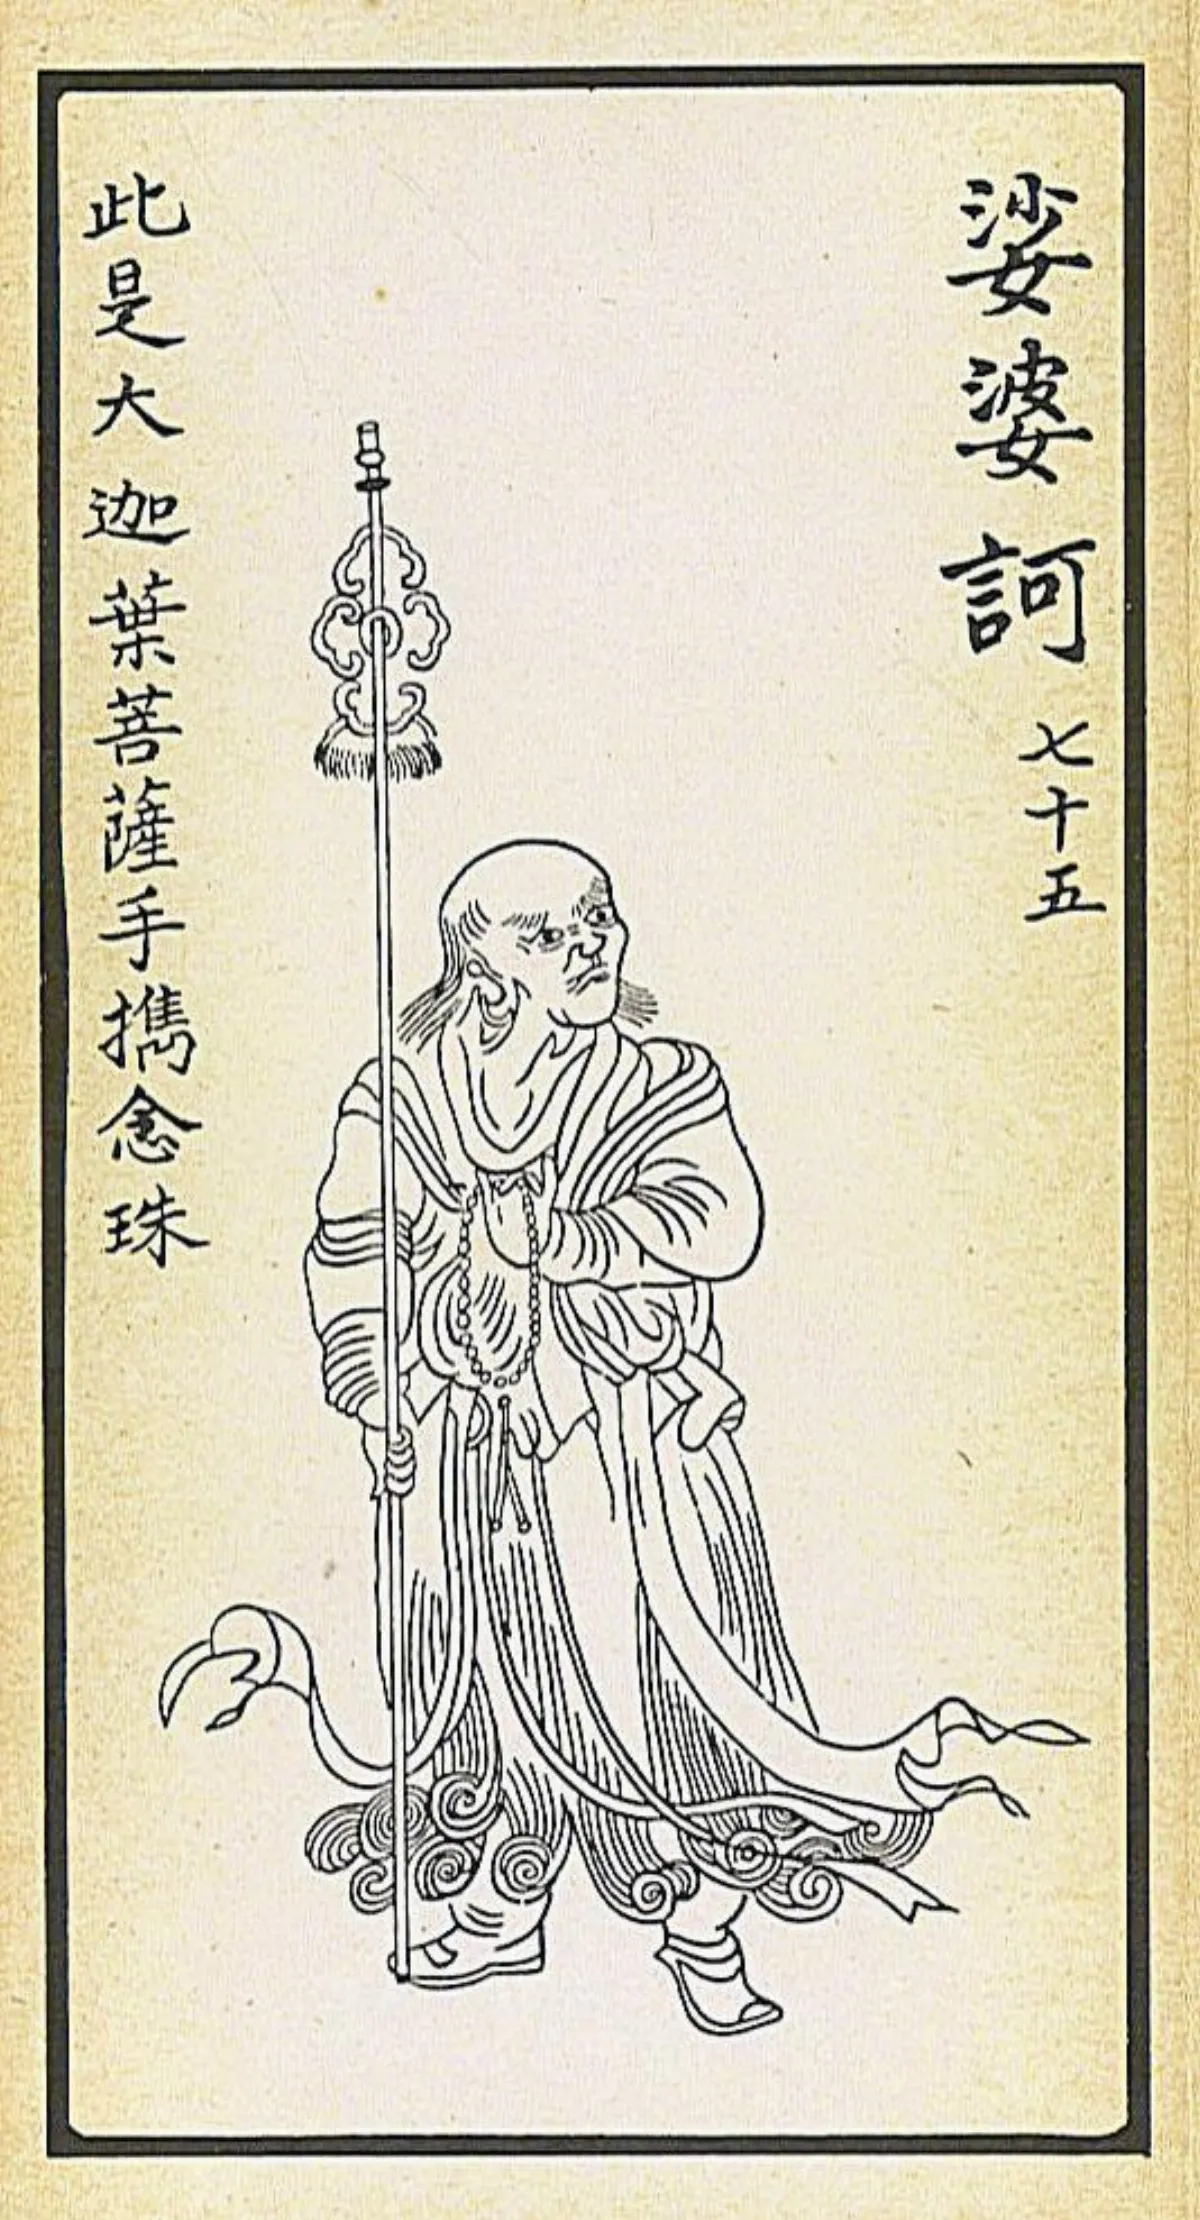 娑婆訶 七十五
此是大迦葉菩薩手攜念珠